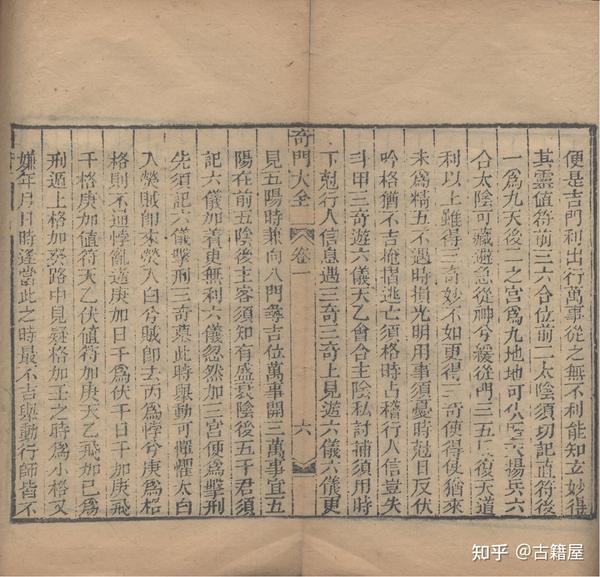 便是吉門利出行萬事從之無不利能知玄妙得
其靈值符前三六合位前二太陰須切記直符後
一爲九天後二之宮爲九地地可天揚兵六
合太陰可藏避急從神兮緩從門三五復天道
利以上雖得三奇妙不如更得奇使得使猶來
未爲精五不遇時損光明用事須憂時尅日反伏
吟格猶不吉掩捕逃亡須格時占稽行人信豈失
斗甲三奇遊六儀天乙會合主陰私討捕須用時
下尅行人信息遇三奇三奇上見遊六儀六儀更
奇門大全 卷一 六
見五陽時兼向八門尋吉位萬事開三萬事宜五
陽在前五陰後主客須知有盛衰陰後五干君須
記六儀加着更無利六儀忽然加三宮便爲擊刑
先須記六儀擊刑三奇墓此時舉動可憚懼太白
入熒賊卽來熒入白兮賊卽去丙爲悖兮庚爲格
格則不通悖亂逆庚加日干爲伏干日干加庚飛
干格庚加值符天乙伏值符加庚天乙飛加己爲
刑遁上格加癸路中見疑格加壬之時爲小格又
嫌年月日時逢當此之時最不吉舉動行師皆不
知乎 @古籍屋